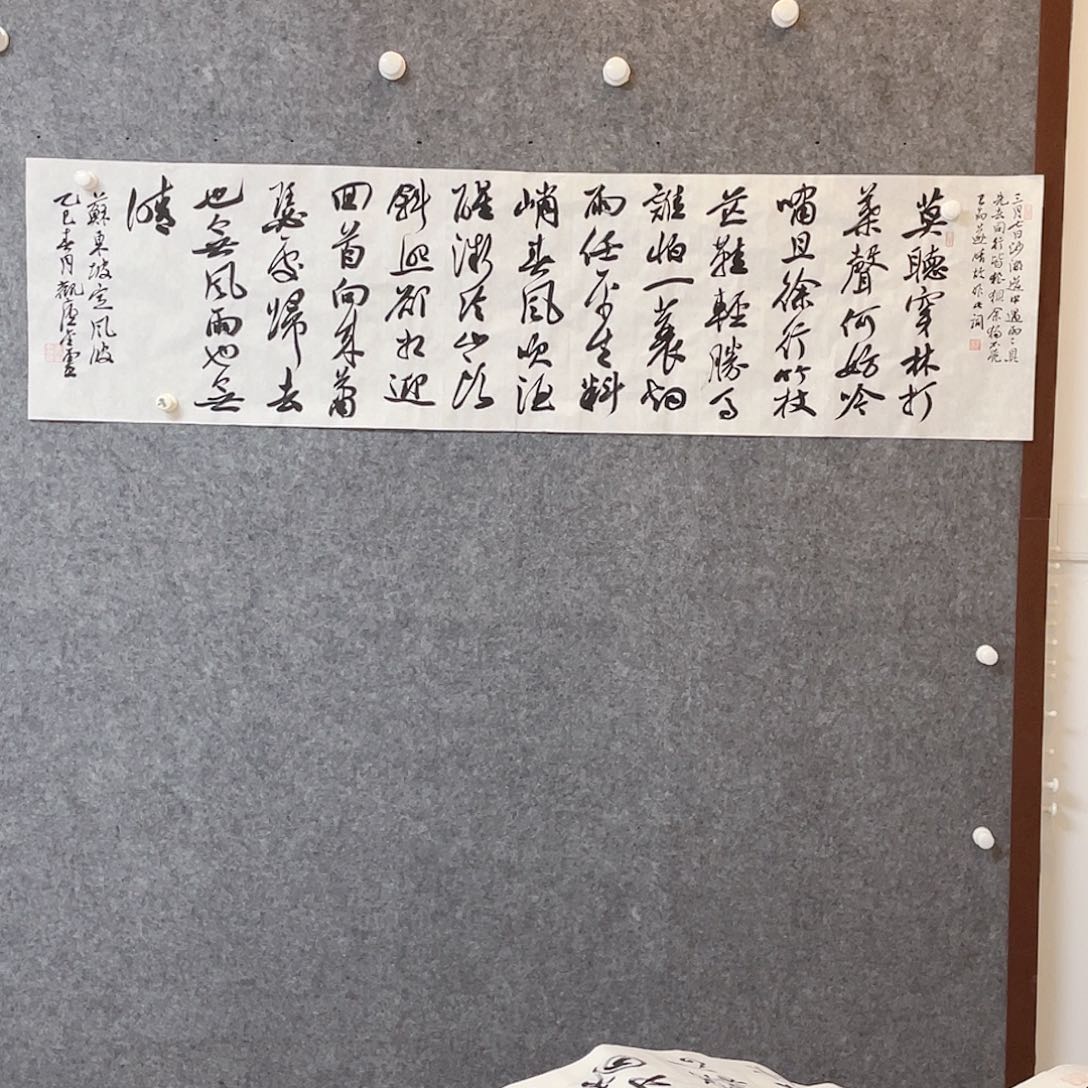 三月七日沙湖道中遇雨〻具
先去同行皆狼狽余獨不覺
已而遂晴故作此詞
莫聽穿林打
葉聲何妨吟
嘯且徐行竹杖
芒鞋輕勝馬
誰怕一蓑烟
雨任平生料
峭春風吹酒
醒微冷山頭
斜照卻相迎
回首向來蕭
瑟處歸去
也無風雨也無
晴
蘇東坡定風波
乙巳春月觀